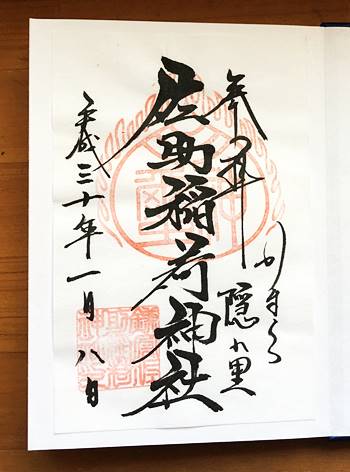 奉拝
かまくら
隠れ里
佐助稲荷神社
平成三十年一月八日